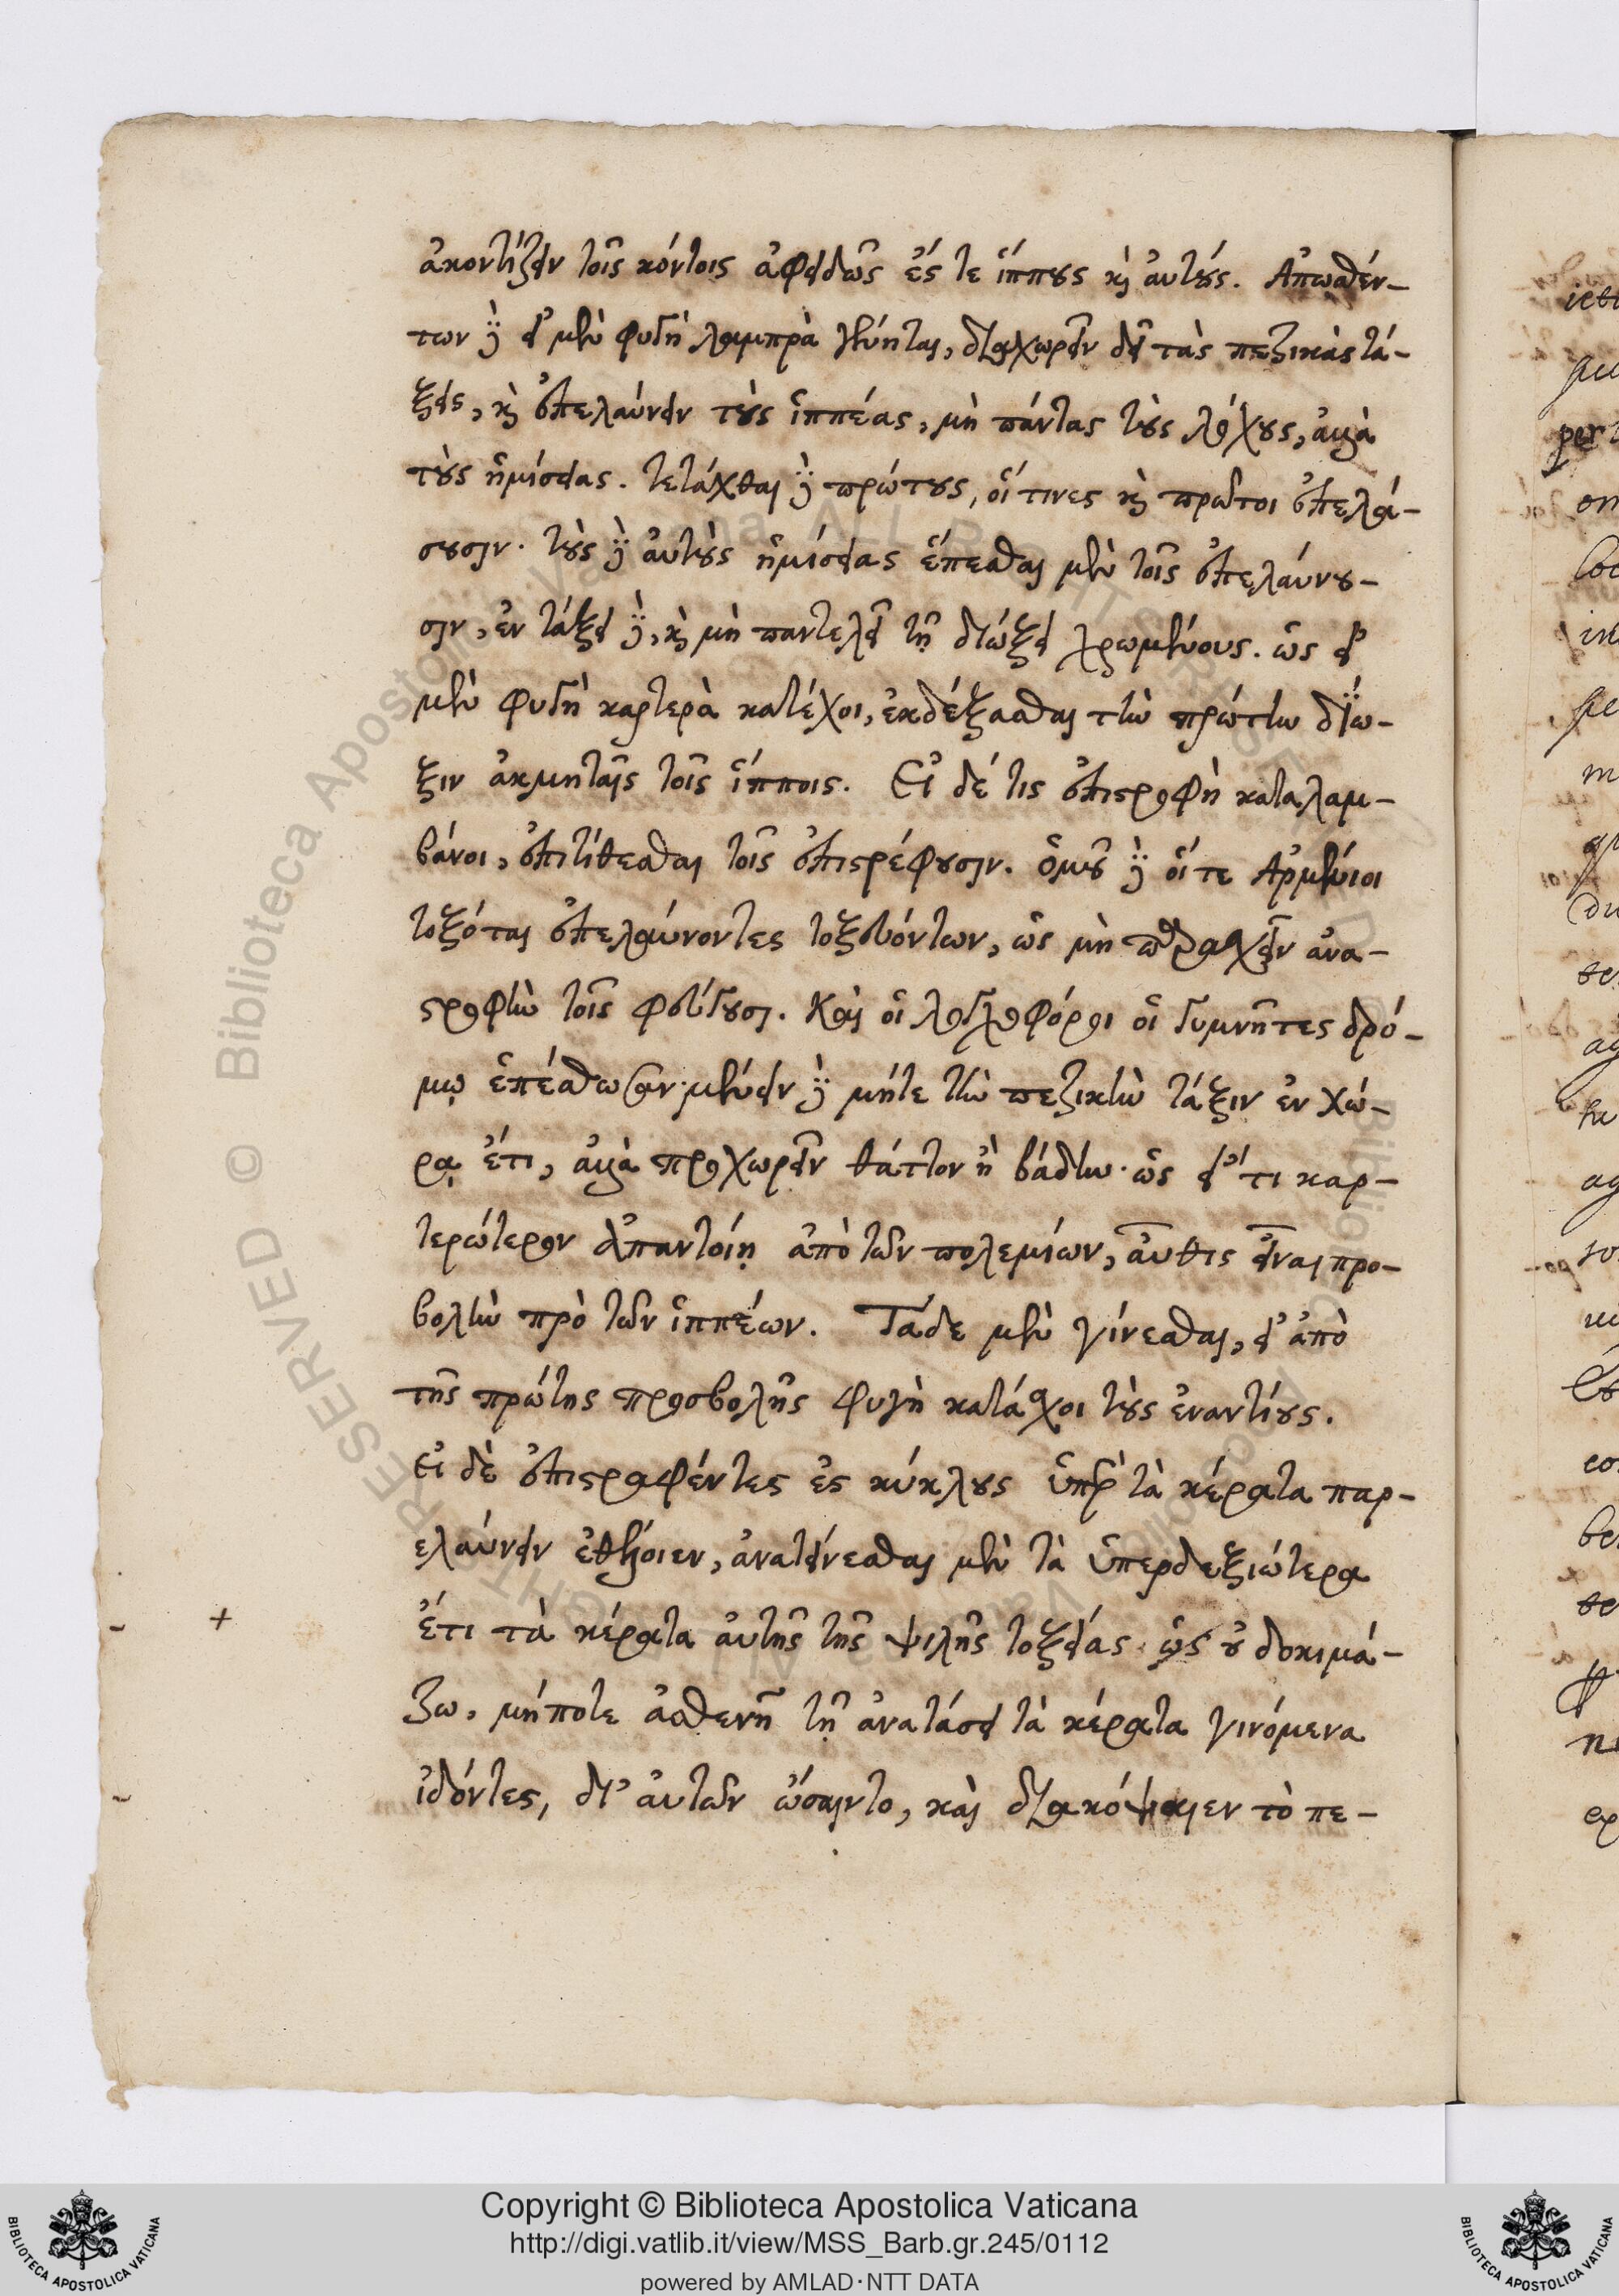 ἀκοντίζειν τοῖς κόντοις ἀφειδῶς ἔς τε ἵππους καὶ ἀυτούς. Ἀπωσθέν-
των δὲ εἰ μὲν φυγὴ λαμπρὰ γένηται, διαχωρεῖν δεῖ τὰς πεζικὰς τά-
ξεις, καὶ ἐπελαύνειν τοὺς ἱππέας, μὴ πάντας τοὺς λόχους, ἀλλὰ
τοὺς ἡμίσεας. τετάχθαι δὲ πρώτους, οἵ τινες καὶ πρῶτοι ἐπελά-
σουσιν. τοὺς δὲ ἀυτοὺς ἡμίσεας ἕπεσθαι μὲν τοῖς ἐπελαύνου-
σιν, ἐν τάξει δὲ, καὶ μὴ παντελεῖ τῇ διώξει χρωμένους. ὡς εἰ
μὲν φυγὴ καρτερὰ κατέχοι, ἐκδέξασθαι τὴν πρώτην δίω-
ξιν ἀκμηταῖς τοῖς ἵπποις. Εἰ δέ τις ἐπιστροφὴ καταλαμ-
βάνοι, ἐπιτίθεσθαι τοῖς ἐπιστρέφουσιν. ὁμοῦ δὲ οἵ τε Ἀρμένιοι
τοξόται ἐπελαύνοντες τοξευόντων, ὡς μὴ παρασχεῖν ἀνα-
στροφὴν τοῖς φεύγουσι. Καὶ οἱ λογχοφόροι οἱ γυμνῆτες δρό-
μῳ ἑπέσθωσαν. μένειν δὲ μήτε τὴν πεζικὴν τάξιν ἐν χώ-
ρᾳ ἔτι, ἀλλὰ προχωρεῖν θᾶττον ἢ βάδην. ὡς εἴ τι καρ-
τερώτερον ἀπαντοίη ἀπὸ τῶν πολεμίων, αὖθις εἶναι προ-
βολὴν πρὸ τῶν ἱππέων. Τάδε μὲν γίνεσθαι, εἰ ἀπὸ
τῆς πρώτης προσβολῆς φυγὴ κατάσχοι τοὺς ἐναντίους.
Εἰ δὲ ἐπιστραφέντες ἐς κύκλους ὑπὲρ τὰ κέρατα παρ-
ελαύνειν ἐθέλοιεν, ἀνατείνεσθαι μὲν τὰ ὑπερδεξιώτερα
ἔτι τὰ κέρατα ἀυτῆς τῆς ψιλῆς τοξείας. ὡς οὐ δοκιμά-
ζω, μήποτε ἀσθενῆ τῇ ἀνατάσει τὰ κέρατα γινόμενα
ἰδόντες, δι' ἀυτῶν ὤσαιντο, καὶ διακόψαιεν τὸ πε-
Copyright © Biblioteca Apostolica Vaticana
http://digi.vatlib.it/view/MSS_Barb.gr.245/0112
powered by AMLAD·NTT DATA